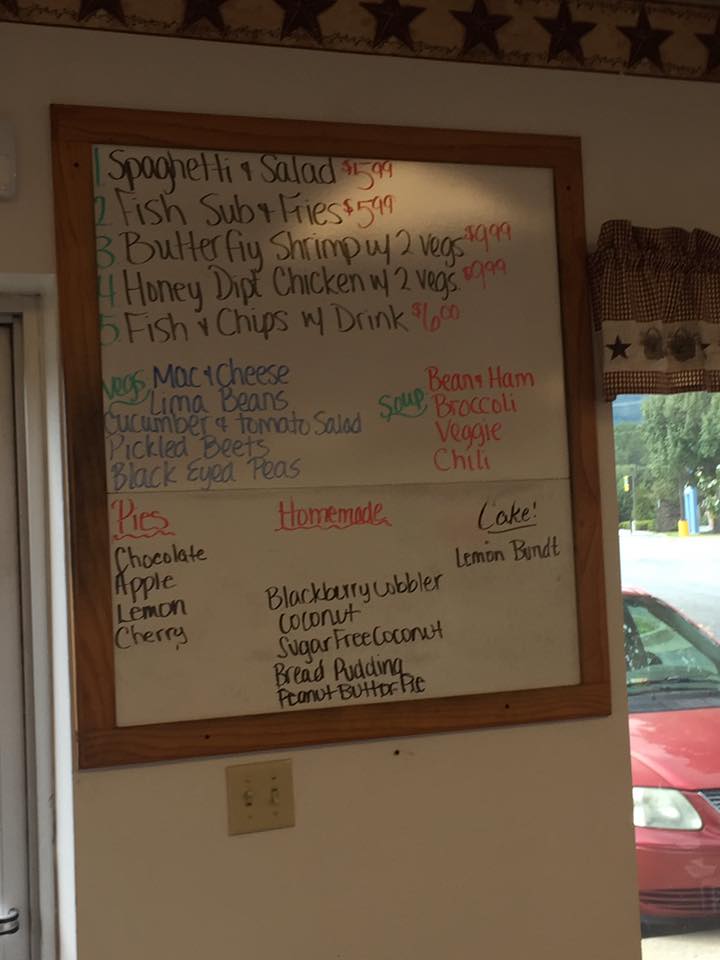 1 Spaghetti & Salad $5.99
2 Fish Sub & Fries $5.99
3 Butterfly Shrimp w/ 2 vegs $9.99
4 Honey Dipt Chicken w/ 2 vegs. $9.99
5 Fish & Chips w/ Drink $6.00
Vegs. Mac & Cheese
Lima Beans
Cucumber & Tomato Salad
Pickled Beets
Black Eyed Peas
Soup Bean & Ham
Broccoli
Veggie
Chili
Pies
Chocolate
Apple
Lemon
Cherry
Homemade
Blackburry Cobbler
Coconut
Sugar Free Coconut
Bread Pudding
Peanut Butter Pie
Cake!
Lemon Bundt